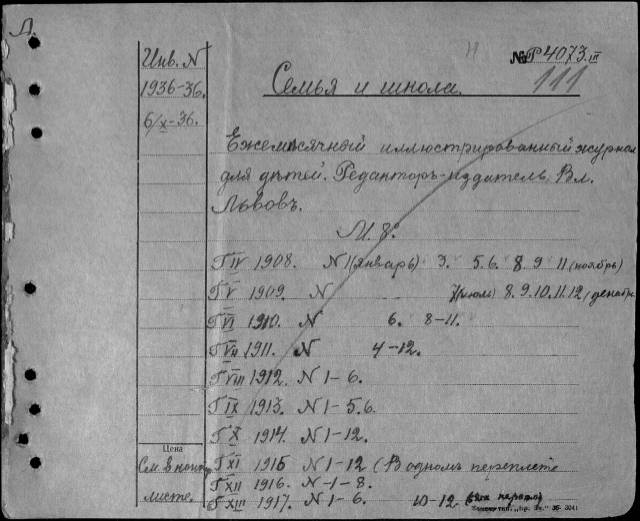 Л.
Инв. N
1936-36.
6/X-36.
№ Р 4073.III
111
Семья и школа.
Ежемѣсячный иллюстрированный журнал
для дѣтей. Редакторъ-издатель Вл.
Львовъ.
М. 8°.
Г IV 1908. N 1 (январь) 3. 5.6. 8. 9 11 (ноябрь)
Г V 1909. N 7 (июль) 8. 9. 10. 11. 12 (декабрь
Г VI 1910. N 6. 8-11.
Г VII 1911. N 4-12.
Г VIII 1912. N 1-6.
Г IX 1913. N 1-5.6.
Г X 1914. N 1-12.
Г XI 1915 N 1-12 (В одномъ переплете
Г XII 1916. N-1-8.
Г XIII 1917. N 1-6. 10-12
Цена
См. в
листе.